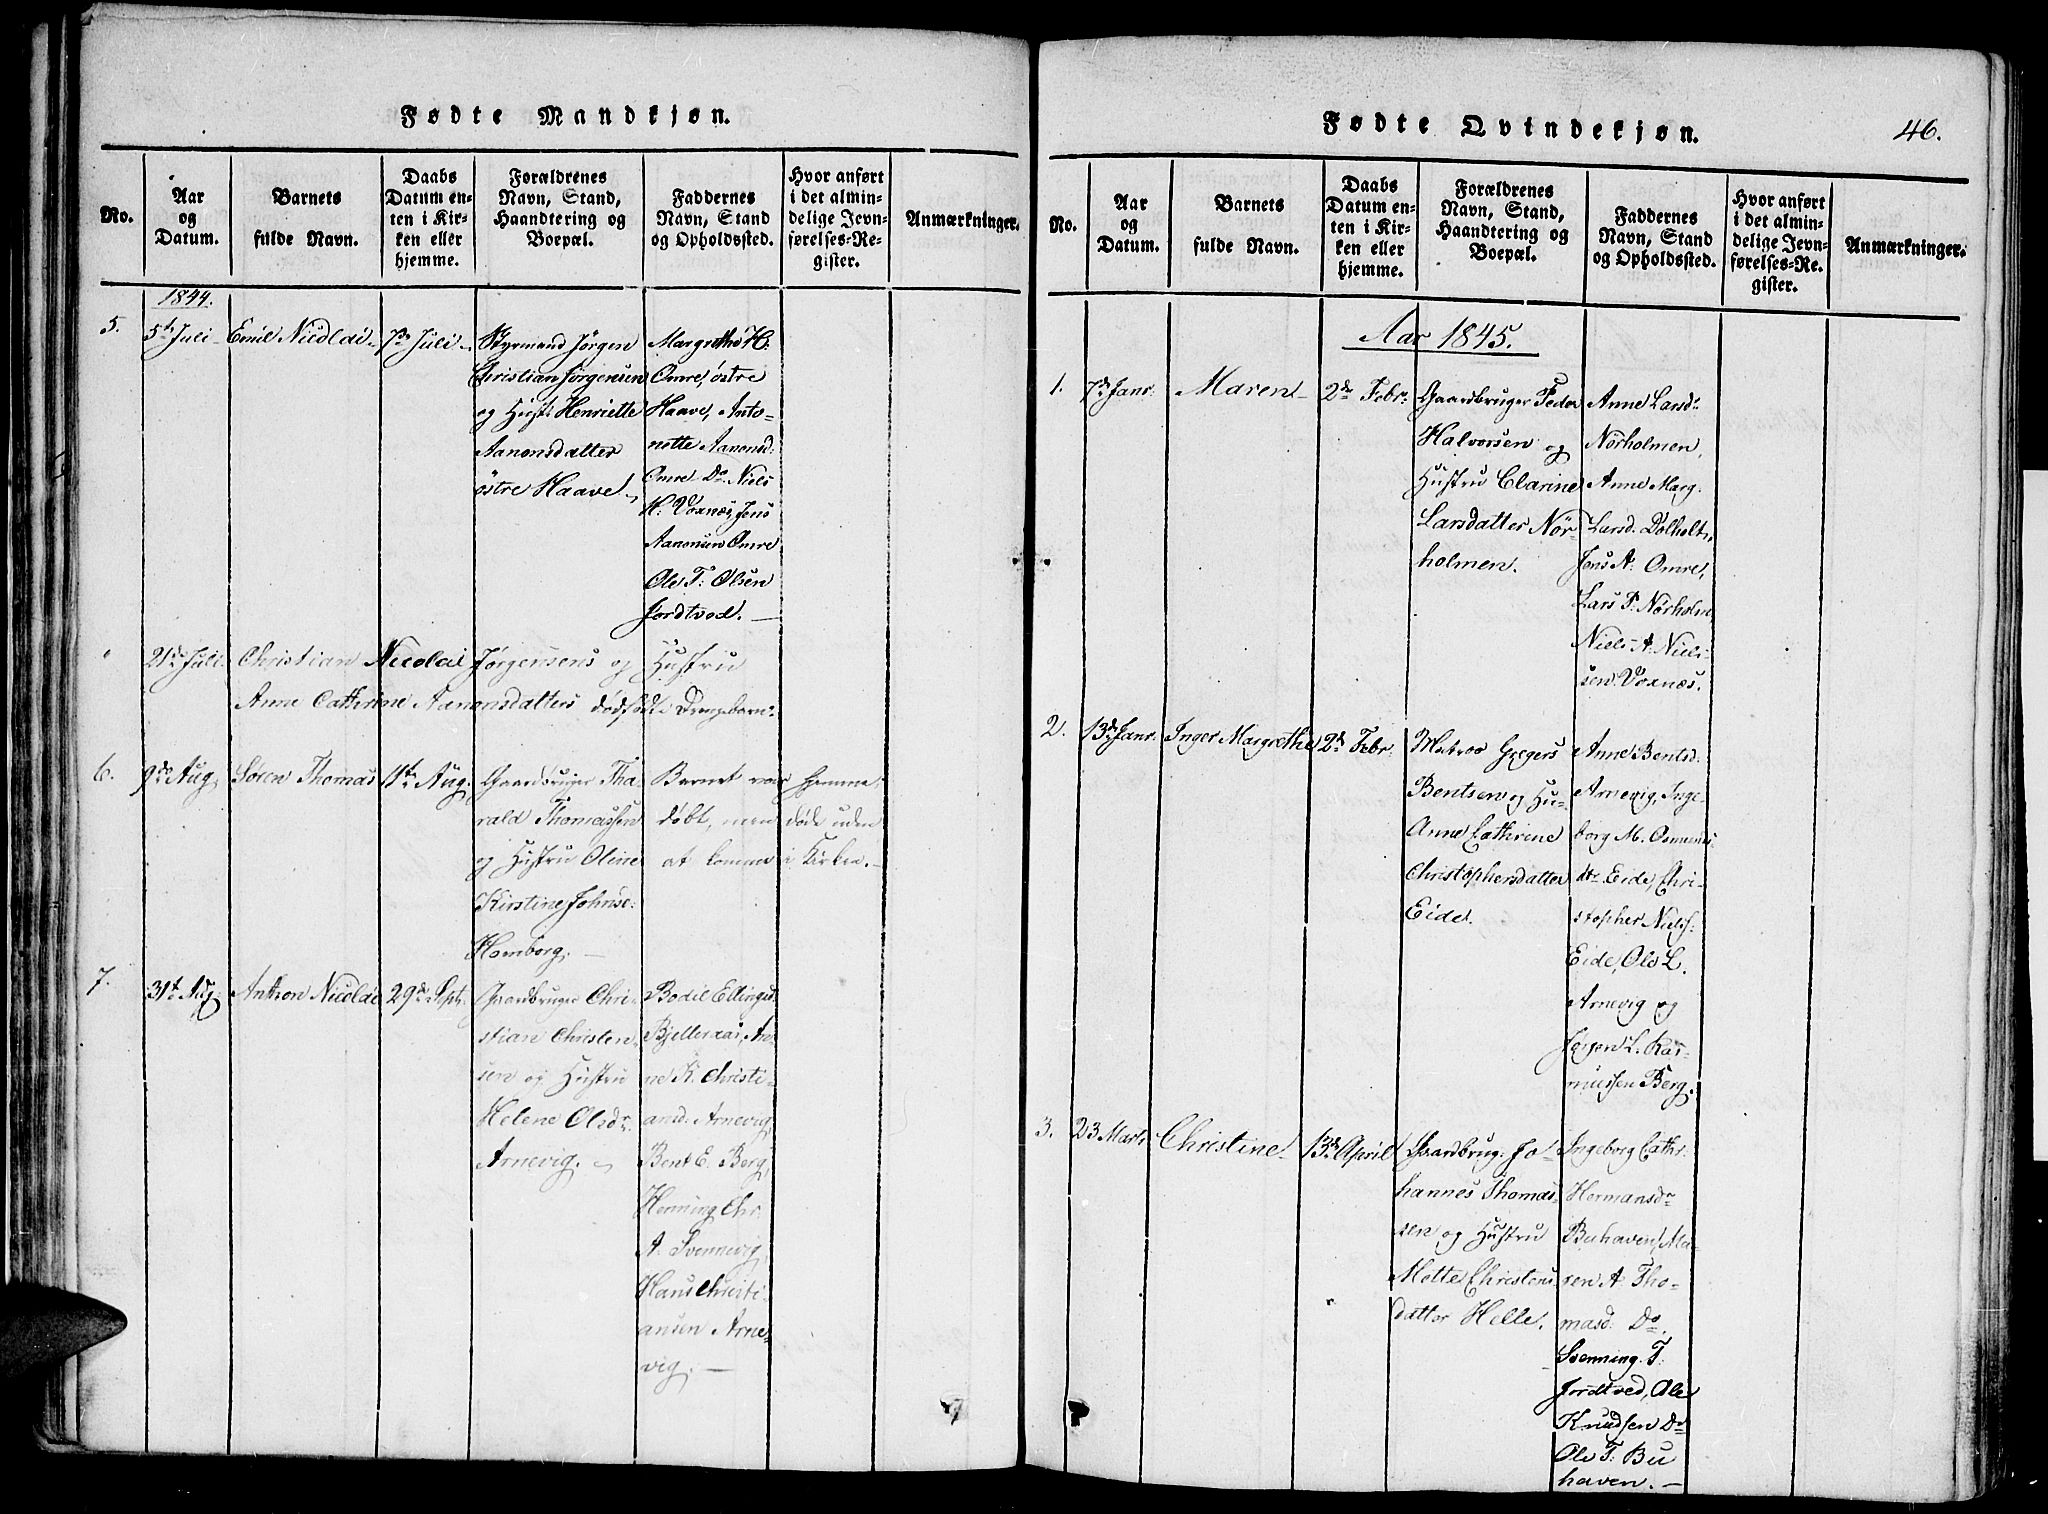 Fødte Mandkjøn.
No.
Aar
og
Datum.
Barnets
fulde Navn.
Daabs
Datum en-
ten i Kir-
ken eller
hjemme.
Forældrenes
Navn, Stand,
Haandtering og
Boepæl.
Faddernes
Navn, Stand
og Opholdssted.
Hvor anført
i det almin-
delige Jevn-
førelses-Re-
gister.
Anmærkninger.
1844.
5.
5te Juli
Emil Nicolai
7de Juli
Styrmand Jörgen
Christian Jörgensen
og Hust: Henriette
Aanonsdatter
östre Haave
Margrethe H:
Omre, östre
Haave, Anto-
nette Aanonsd:
Omre Do Niels
H: Voxnes, Jens
Aanonsen Omre
Ole T: Olsen
Jordtved.
21de Juli
Christian Nicolai Jørgensens og Hustru
Anne Cathrine Aanonsdatters dødfødte Drengebarn
6.
9de Aug
Sören Thomas
11te Aug:
Gaardbruger Tha
rald Thomassen
og Hustru Oline
Kirstine Johnsd:
Homborg.
Barnet var hjemme-
døbt, men døde uden
at komme i Kirken.
7.
31te Aug:
Anthon Nicolai
29de Sept:
Gaardbruger Chri-
stian Christen-
sen og Hustru
Helene Olsdr
Arnevig.
Bodil Ellingsd.
Bjelleraas, An-
ne K. Christi-
ansd: Arnevig,
Bent E. Berg,
Henning Chr.
A. Svennevig,
Hans Christi-
ansen Arne-
vig.
Fødte Qvindekjøn.
46.
No.
Aar
og
Datum.
Barnets
fulde Navn.
Daabs
Datum en-
ten i Kir-
ken eller
hjemme.
Forældrenes
Navn, Stand,
Haandtering og
Boepæl.
Faddernes
Navn, Stand
og Opholdssted.
Hvor anført
i det almin-
delige Jevn-
førelses-Re-
gister.
Anmærkninger.
Aar 1845.
1.
7de Janr:
Maren
2de Febr:
Gaardbruger Peder
Halvorsen og
Hustru Clarine
Larsdatter Nör-
holmen.
Anne Larsdr
Nörholmen,
Anne Marg.
Larsd. Dolholt,
Jens A: Omre,
Lars P. Nörholm,
Niels A. Niels-
sen Voxnæs.
2.
13de Janr.
Inger Margrethe
2de Febr.
Matros Gregers
Bentsen og Hu-
Anne Cathrine
Christophersdatter
Eide.
Anne Bentsd.
Arnevig, Inge-
borg M. Osmunds
dtr Eide, Chri-
stopher Niels:
Eide, Ole L.
Arnevig og
Jørgen L. Ras-
mussen Berg.
3.
23 Marts
Christine
13de April
Gaardbrug: Jo-
hannes Thomas-
sen og Hustru
Mette Christens
datter Helle.
Ingeborg Cathr.
Hermansdr
Buhaven, Ma-
ren A Tho-
masd: Do
Svenning T:
Jordtved, Ole
Knudsen Do
Ole T: Bu
haven.